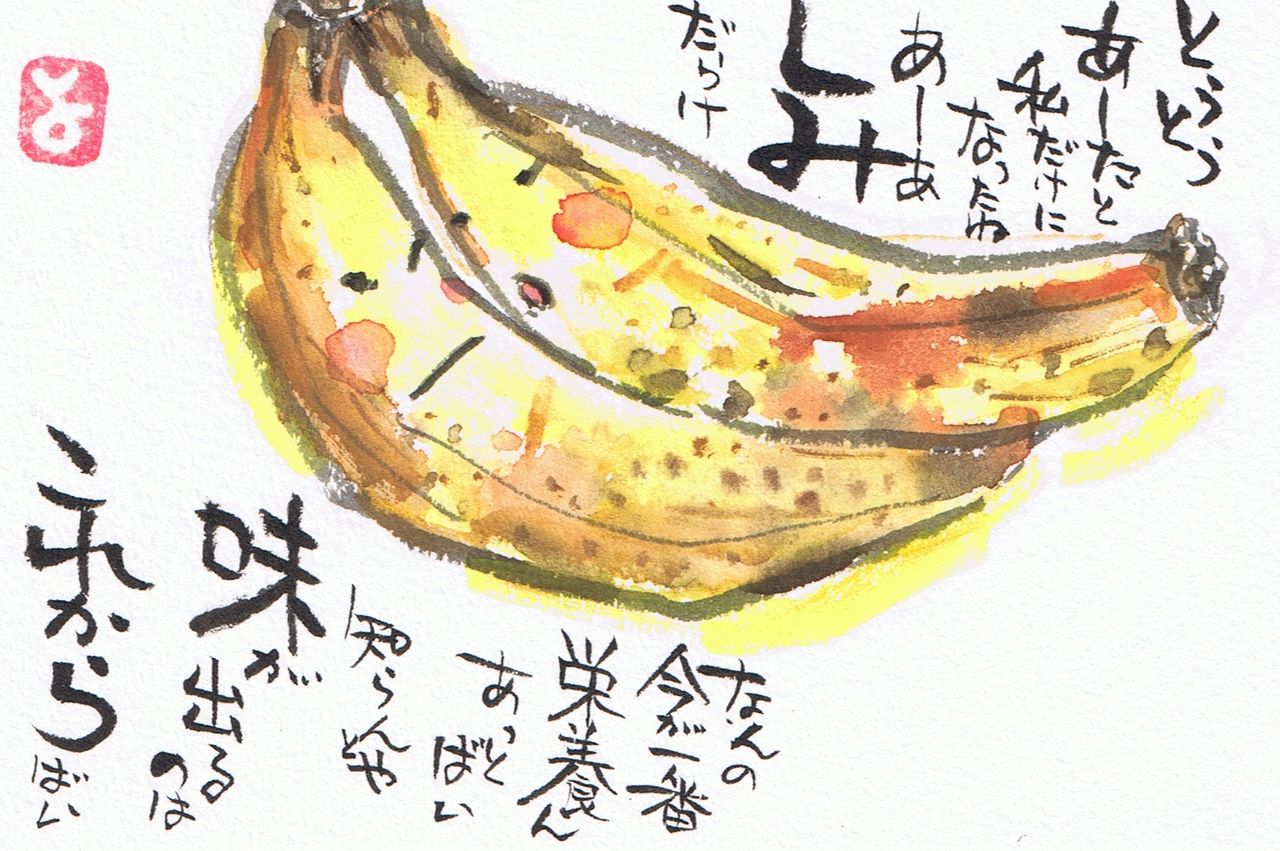 とうとう
あーたと
私だけに
なったね
あーあ
しみ
だらけ
なんの
今が一番
栄養ん
あっと
ばい
知らんと
や
味が
出る
のは
これから
ばい
と